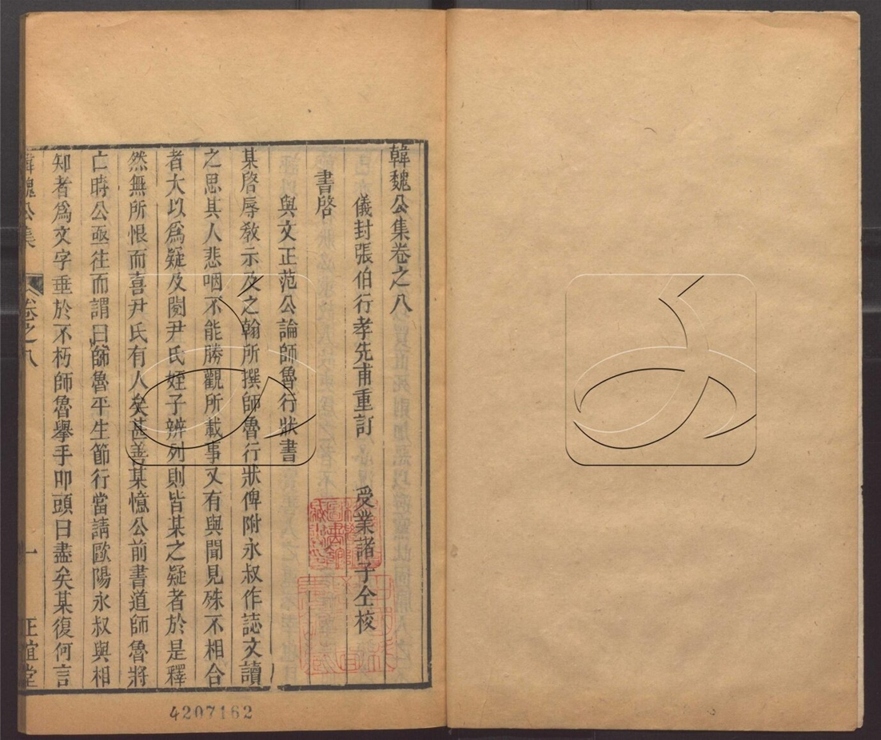 韓魏公集卷之八
儀封張伯行孝先甫重訂 受業諸子仝校
書啓
與文正范公論師魯行狀書
某啓辱敎示及之翰所撰師魯行狀俾附永叔作誌文讀
之思其人悲咽不能勝觀所載事又有與聞見殊不相合
者大以爲疑及閱尹氏姪子辨列則皆某之疑者於是釋
然無所恨而喜尹氏有人矣甚善某憶公前書道師魯將
亡時公亟往而謂曰師魯平生節行當請歐陽永叔與相
知者爲文字垂於不朽師魯舉手叩頭曰盡矣某復何言
韓魏公集 卷之八 一 正誼堂
4207162